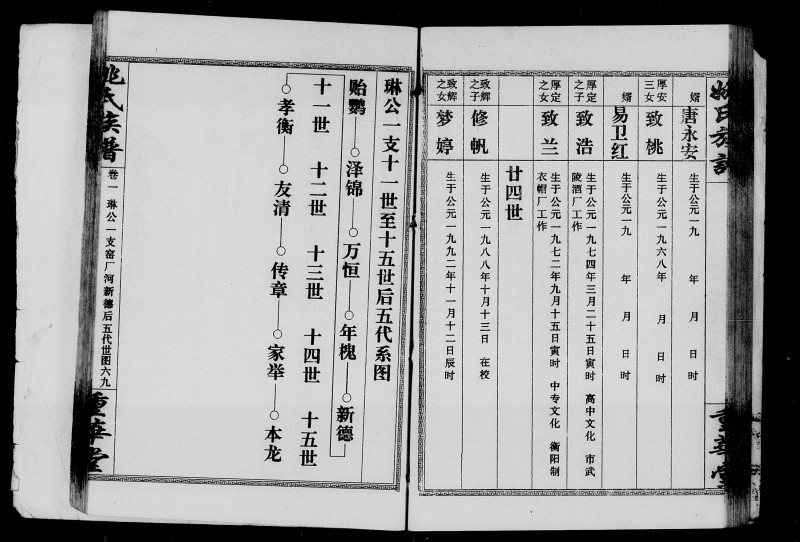 姚氏族譜
重華堂
婿
唐永安
生于公元一九 年 月 日 时
厚安三女
致桃
生于公元一九六八年 月 日 时
婿
易卫红
生于公元一九 年 月 日 时
厚定之子
致浩
生于公元一九七四年三月二十五日寅时 高中文化 市武
陵酒厂工作
厚定之女
致兰
生于公元一九七二年九月十五日寅时 中专文化 衡阳制
衣帽厂工作
廿四世
致辉之子
修帆
生于公元一九八八年十月十三日 在校
致辉之女
梦婷
生于公元一九九二年十一月十二日辰时
琳公一支十一世至十五世后五代系图
贻鹦 泽锦 万恒 年槐 新德
十一世 十二世 十三世 十四世 十五世
孝衡 友清 传章 家举 本龙
姚氏族譜
卷一 琳公一支窑厂河新德后五代世图六九
重華堂